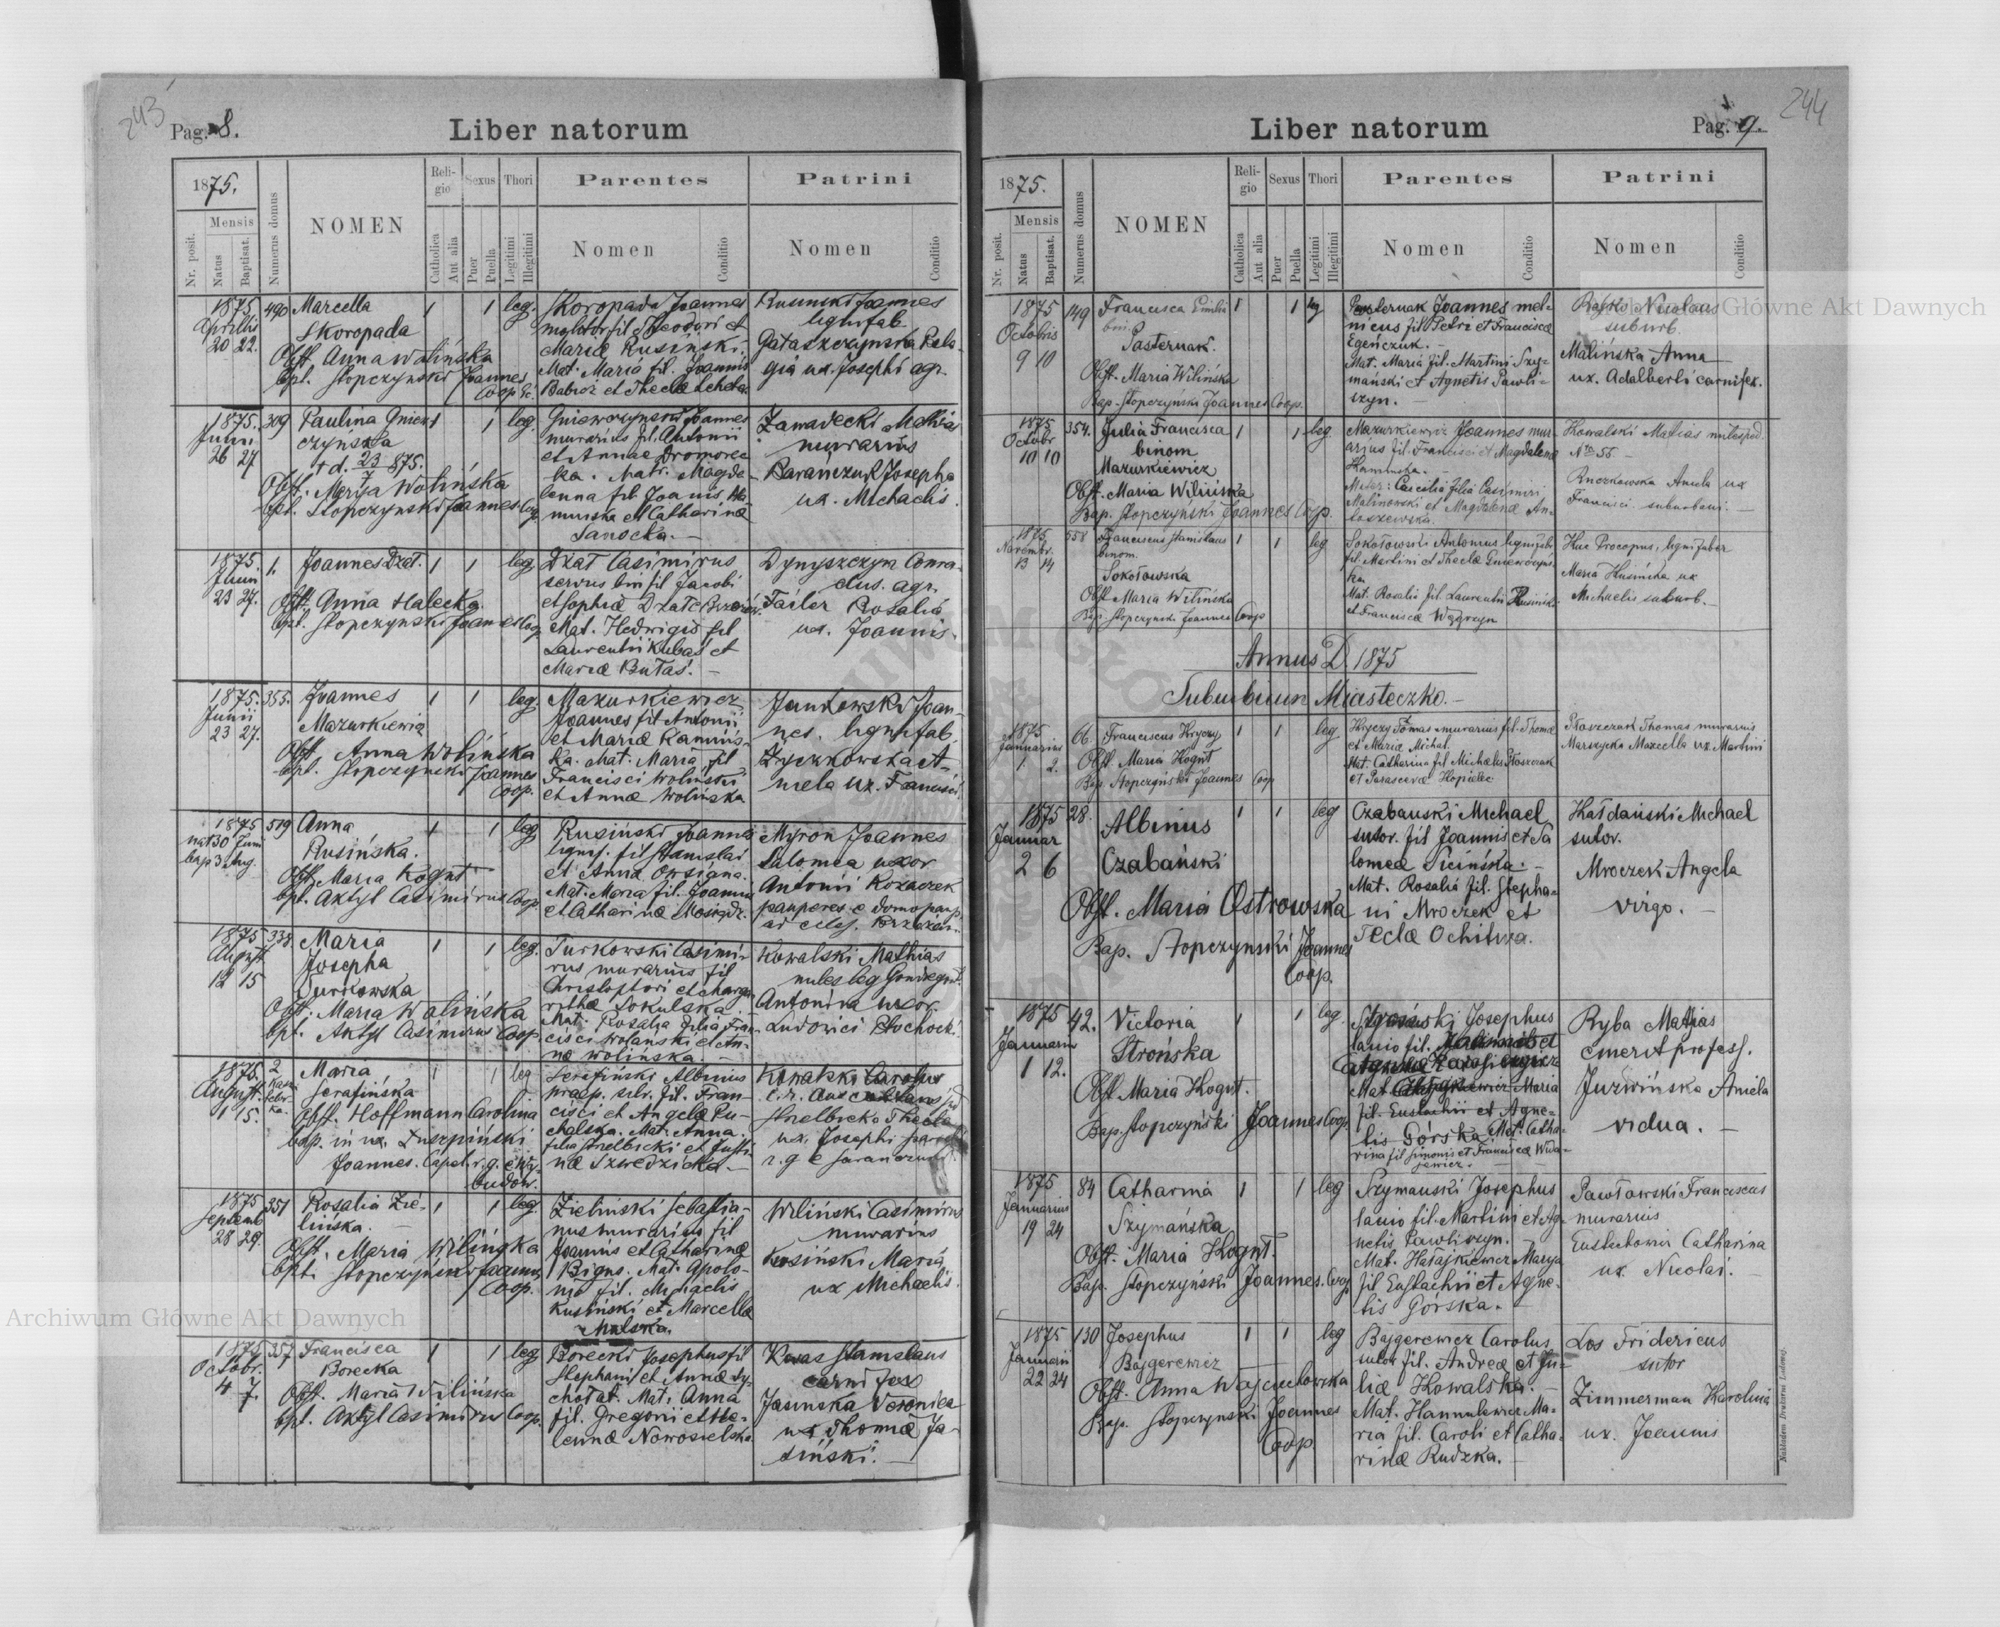 243
Pag. 8.
Liber natorum
1875.
Mensis
Nr. posit.
Natus
Baptisat.
Numerus domus
NOMEN
Religio
Catholica
Aut alia
Sexus
Puer
Puella
Thori
Legitimi
Illegitimi
Parentes
Nomen
Conditio
Patrini
Nomen
Conditio
1875 Aprilis 20 22.
490
Marcella
Skoropada
Obst. Anna Wolińska
bpt. Stopczynski Joannes
Coop.
1 1 leg.
Skoropada Joannes
molitor fil Theodori et
Mariæ Rusinski.
Mat. Maria fil. Joannis
Rusinski Joannes
lignifab.
Gataszczynska Pela-
gia ux. Josephi agr.
1875. Junii 26 27
309
Paulina Gniewo-
czyńska
† d. 23/7 875.
Obst. Marya Wolińska
bpt. Stopczynski Joannes Coop
1 leg.
Gnieworzynski Joannes
murarius fil. Antonii
et Annae Dromorec-
ka. Matr. Magda-
lenna fil. Joannis Ka
minska et Catharinæ
Sanocka. —
Zawadecki Mathias
murarius
Baranczuk Josepha
ux. Michaelis.
1875. Junii 23 27.
1.
Joannes Dzat.
Obst. Anna Halecka
bpt. Stopczynski Joannes Coop
1 1 leg.
Dzat Casimirus
servus fil Jacobi
et Sophiæ
Mat. Hedwigis fil
Laurentii Kubas et
Mariæ Butas. —
Dynyszczyn Conra-
dus. agr.
Tailer Rosalia
ux. Joannis.
1875. Junii 23 27.
355.
Joannes
Mazurkiewicz
Obst. Anna Wolińska
bpt. Stopczynski Joannes
Coop.
1 1 leg.
Mazurkiewicz
Joannes fil Antonii
et Mariæ Kamins-
ka. Mat. Maria fil
Francisci Wolinski
et Annæ Wolińska
Janitowski Joan-
nes. lignifab.
Zyczkowska A-
niela ux. Francisci
1875 nat 30 Juni
bap 3 Aug.
519
Anna
Rusińska.
Obst. Maria Kogut
bpt. Aktyl Casimirus Coop
1 1 leg
Rusiński Joannes
lignif. fil Stanislai
et Anna
Mat. Maria fil. Joannis
et Catharinæ
Myron Joannes
Salomea uxor
Antonii Kozaczek
pauperes e domo paup.
1875 August 12 15
338.
Maria
Josepha
Turkowska
Obst. Maria Wolińska
bpt. Aktyl Casimirus Coop
1 1 leg.
Turkowski Casimi-
rus murarius fil
Christophori et Marga-
rithæ Sokulska
Mat. Rosalia filia Fran-
cisci Wolanski et An-
næ Wolinska. —
Kowalski Mathias
miles leg
Antonina uxor
Ludovici Cochocki
1875. August. 1 15.
2
Maria
Serafińska
Obst. Hoffmann Carolina
bap. in ux. Luszpiński
Joannes. Capel. r. g. e
1 1 leg
Serafiński Albinus
præp. silv. fil. Fran-
cisci et Angelæ Pu-
chalska. Mat. Anna
filia Strelbicki et Justi-
næ Szwedzicka. —
Kowalski Carolus
Strelbicka Thecla
ux. Josephi
r. g. e
1875 Septemb 28 29.
351
Rosalia Zie-
lińska. —
Obst. Maria Wilińska
bpt. Stopczyński Joannes
Coop.
1 1 leg.
Zieliński Sebastia-
nus murarius fil
Joannis et Catharinæ
Bigus. Mat. Apolo-
nia fil. Michaelis
Kusiński et Marcella
Malska.
Wiliński Casimirus
murarius
Kusiński Maria
ux Michaelis.
1875 Octobr. 4 7.
357
Francisca
Borecka
Obst. Maria Wilińska
bpt. Aktyl Casimirus Coop.
1 1 leg
Borecki Josephus fil
Stephani et Annæ Ly-
chatat. Mat. Anna
fil. Gregorii et He-
lennæ Nowosielska
Kwas Stanislaus
carnifex
Jasinska Veronica
ux Thomæ Ja-
siński. —
244
Pag. 9.
Liber natorum
1875.
Mensis
Nr. posit.
Natus
Baptisat.
Numerus domus
NOMEN
Religio
Catholica
Aut alia
Sexus
Puer
Puella
Thori
Legitimi
Illegitimi
Parentes
Nomen
Conditio
Patrini
Nomen
Conditio
1875 Octobris 9 10
149
Francisca Emilia
bin.
Pasternak.
Obst. Maria Wilińska
Bap. Stopczynski Joannes Coop.
1 1 leg
Pasternak Joannes
fil Petri et Franciscæ
Egeńczuk. —
Mat. Maria fil. Martini Szy-
mański et Agnetis Pawli-
szyn. —
Nicolaus
suburb.
Malińska Anna
ux. Adalberti carnifex.
1875. Octobr 10 10
354.
Julia Francisca
binom
Mazurkiewicz
Obst. Maria Wilińska
Bap. Stopczynski Joannes Coop.
1 1 leg.
Mazurkiewicz Joannes mur-
arius fil. Francisci et Magdalena
Kaminska. —
Mater: Cæcilia filia Casimiri
Malinowski et Magdalenæ An-
toszewska.
Kowalski Matias miles
No 55. —
Ruczkowska Aniela ux
Francisci suburbani. —
1875 Novembr. 13 14
558
Franciscus Stanislaus
binom.
Sokołowska
Obst Maria Wilińska
Bap. Stopczynski Joannes Coop
1 1 leg
Sokołowski Antonius lignifab.
fil. Martini et Theclæ
ka
Mat. Rosalia fil Laurentii Rusiński
et Franciscæ Węgrzyn
Huc Procopus, lignifaber
Maria Kusińska ux
Michaelis suburb. —
Annus D. 1875
Suburbium Miasteczko. —
1875 Januarius 1 2.
66.
Franciscus Kryczy
Obst. Maria Kogut
Bap. Stopczyński Joannes Coop
1 1 leg
Kryczy Tomas murarius fil. Thomæ
et Mariæ Michat.
Mat. Catharina fil Michaelis Ptaszczak
et Parascevæ Hopielec
Ptaszczak Thomas murarius
Marszycka Marcella ux Martini
1875 Januar 2 6
28.
Albinus
Czabański
Obst. Maria Ostrowska
Bap. Stopczynski Joannes
Coop.
1 1 leg
Czabanski Michael
sutor. fil Joannis et Sa
lomeæ Sicińska. —
Mat. Rosalia fil. Stepha-
ni Mroczek et
Teclæ Ochitwa.
Kałdański Michael
sutor.
Mroczek Angela
virgo. —
1875 Januarii 1 12.
42.
Victoria
Strońska
Obst Maria Kogut.
Bap. Stopczyński Joannes Coop.
1 1 leg.
Stroński Josephus
lanio fil.
Mat. Maria
fil. Eustachii et Agne-
tis Górska. Mat. Catha-
rina fil Simonis et Franciscæ
Ryba Matias
emerit profess.
Juzwińska Aniela
vidua. —
1875 Januarius 19 24
84
Catharina
Szymańska
Obst. Maria Kogut.
Bap. Stopczyński Joannes. Coop
1 1 leg
Szymanski Josephus
lanio fil. Martini et Ag-
netis Pawliszyn. —
Mat. Hałajkiewicz Marya
fil Eustachii et Agne-
tis Górska. —
Pawłowski Franciscus
murarius
Catharina
ux. Nicolai. —
1875 Januarii 22 24
130
Josephus
Bajgerewicz
Obst. Anna Wojciechowska
Bap. Stopczynski Joannes
Coop
1 1 leg
Bajgerewicz Carolus
sutor fil. Andreæ et Ju-
liæ Kowalska. —
Mat. Hannulewicz Ma-
ria fil. Caroli et Catha-
rinæ Rudzka. —
Los Fridericus
sutor
Zimmerman Karolina
ux. Joannis
Archiwum Główne Akt Dawnych
Główne Akt Dawnych